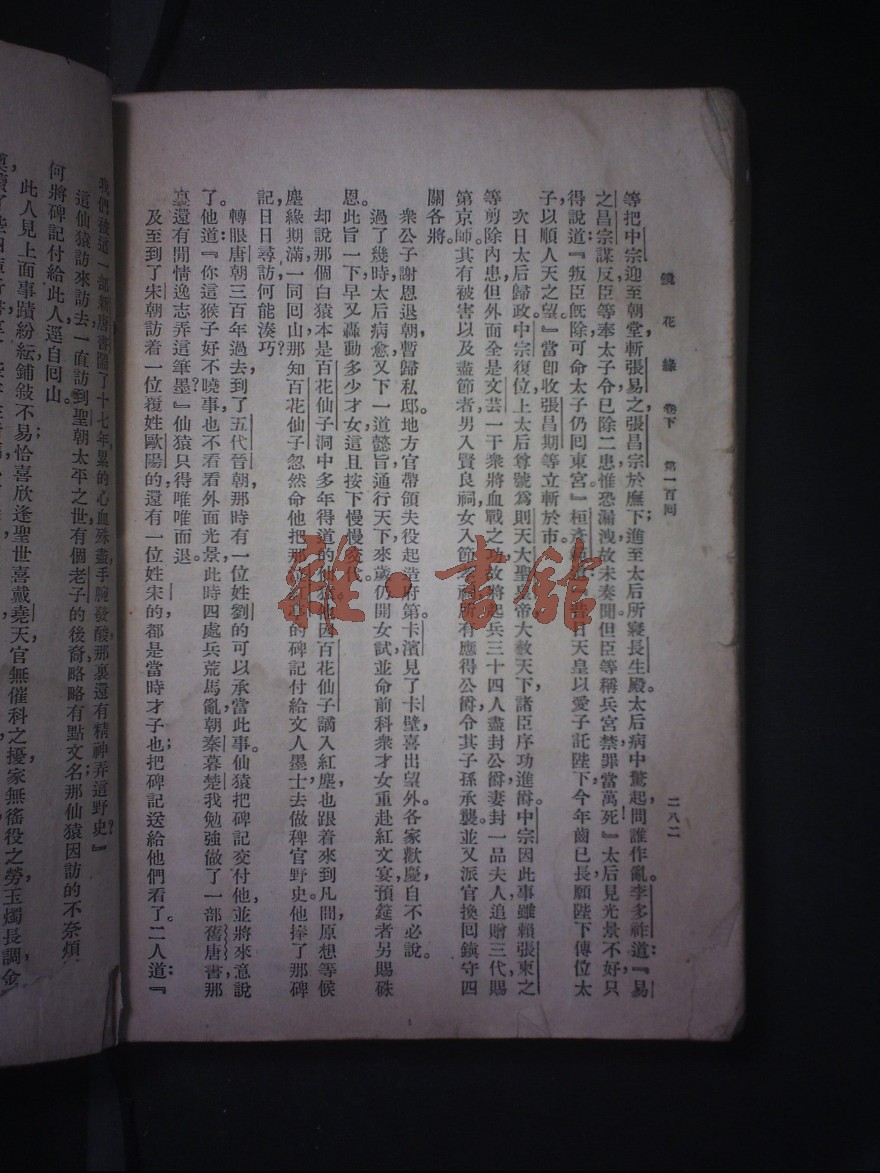 鏡花緣 卷下 第一百回 二八二
等把中宗迎至朝堂，斬張易之，張昌宗於廡下；進至太后所寢長生殿。太后病中驚起，問誰作亂。李多祚道：『易
之昌宗謀反，臣等奉太子令已除二患，惟恐漏洩，故未奏聞。但臣等稱兵宮禁，罪當萬死。』太后見光景不好，只
得說道：『叛臣旣除，可命太子仍囘東宮。』桓彥 昔日天皇以愛子託陛下，今年齒已長，願陛下傳位太
子，以順人天之望。』當卽收張昌期等立斬於市。
次日太后歸政。中宗復位，上太后尊號爲則天大聖皇帝，大赦天下，諸臣序功進爵。中宗因此事雖賴張柬之
等剪除內患，但外面全是文芸一干衆將血戰之功，故將起兵三十四人盡封公爵，妻封一品夫人，追贈三代，賜
第京師。其有被害以及盡節者，男入賢良祠，女入節 祠。所有應得公爵，令其子孫承襲。並又派官換囘鎮守四
關各將。
衆公子謝恩退朝，暫歸私邸。地方官帶領夫役起造府第。卞濱見了卞璧，喜出望外。各家歡慶，自不必說。
過了幾時，太后病愈，又下一道懿旨，通行天下：來歲仍開女試，並命前科衆才女重赴紅文宴，預筵者另賜硃
恩。此旨一下，早又轟動多少才女，這且按下慢慢交代。
却說那個白猿本是百花仙子洞中多年得道的仙猿。他因百花仙子謫入紅塵，也跟着來到凡間，原想等候
塵緣期滿，一同囘山。那知百花仙子忽然命他把那 的碑記付給文人墨士，去做稗官野史。他捧了那碑
記日日尋訪，何能湊巧？
轉眼唐朝三百年過去，到了五代晉朝，那時有一位姓劉的可以承當此事。仙猿把碑記交付他，並將來意說
了。他道：『你這猴子好不曉事，也不看看外面光景，此時四處兵荒馬亂，朝秦暮楚，我勉強做了一部舊唐書，那
裏還有閒情逸志弄這筆墨？』仙猿只得唯唯而退。
及至到了宋朝，訪着一位覆姓歐陽的，還有一位姓宋的，都是當時才子；也把碑記送給他們看了。二人道：『
我們被這一部新唐書鬧了十七年，累的心血殊盡，手腕發酸，那裏還有精神弄這野史？』
這仙猿訪來訪去，一直訪到聖朝太平之世，有個老子的後裔，略略有點文名；那仙猿因訪的不奈煩，
何將碑記付給此人，逕自囘山。
此人見上面事蹟紛紜，鋪敍不易；恰喜欣逢聖世，喜戴堯天，官無催科之擾，家無徭役之勞，玉燭長調，金